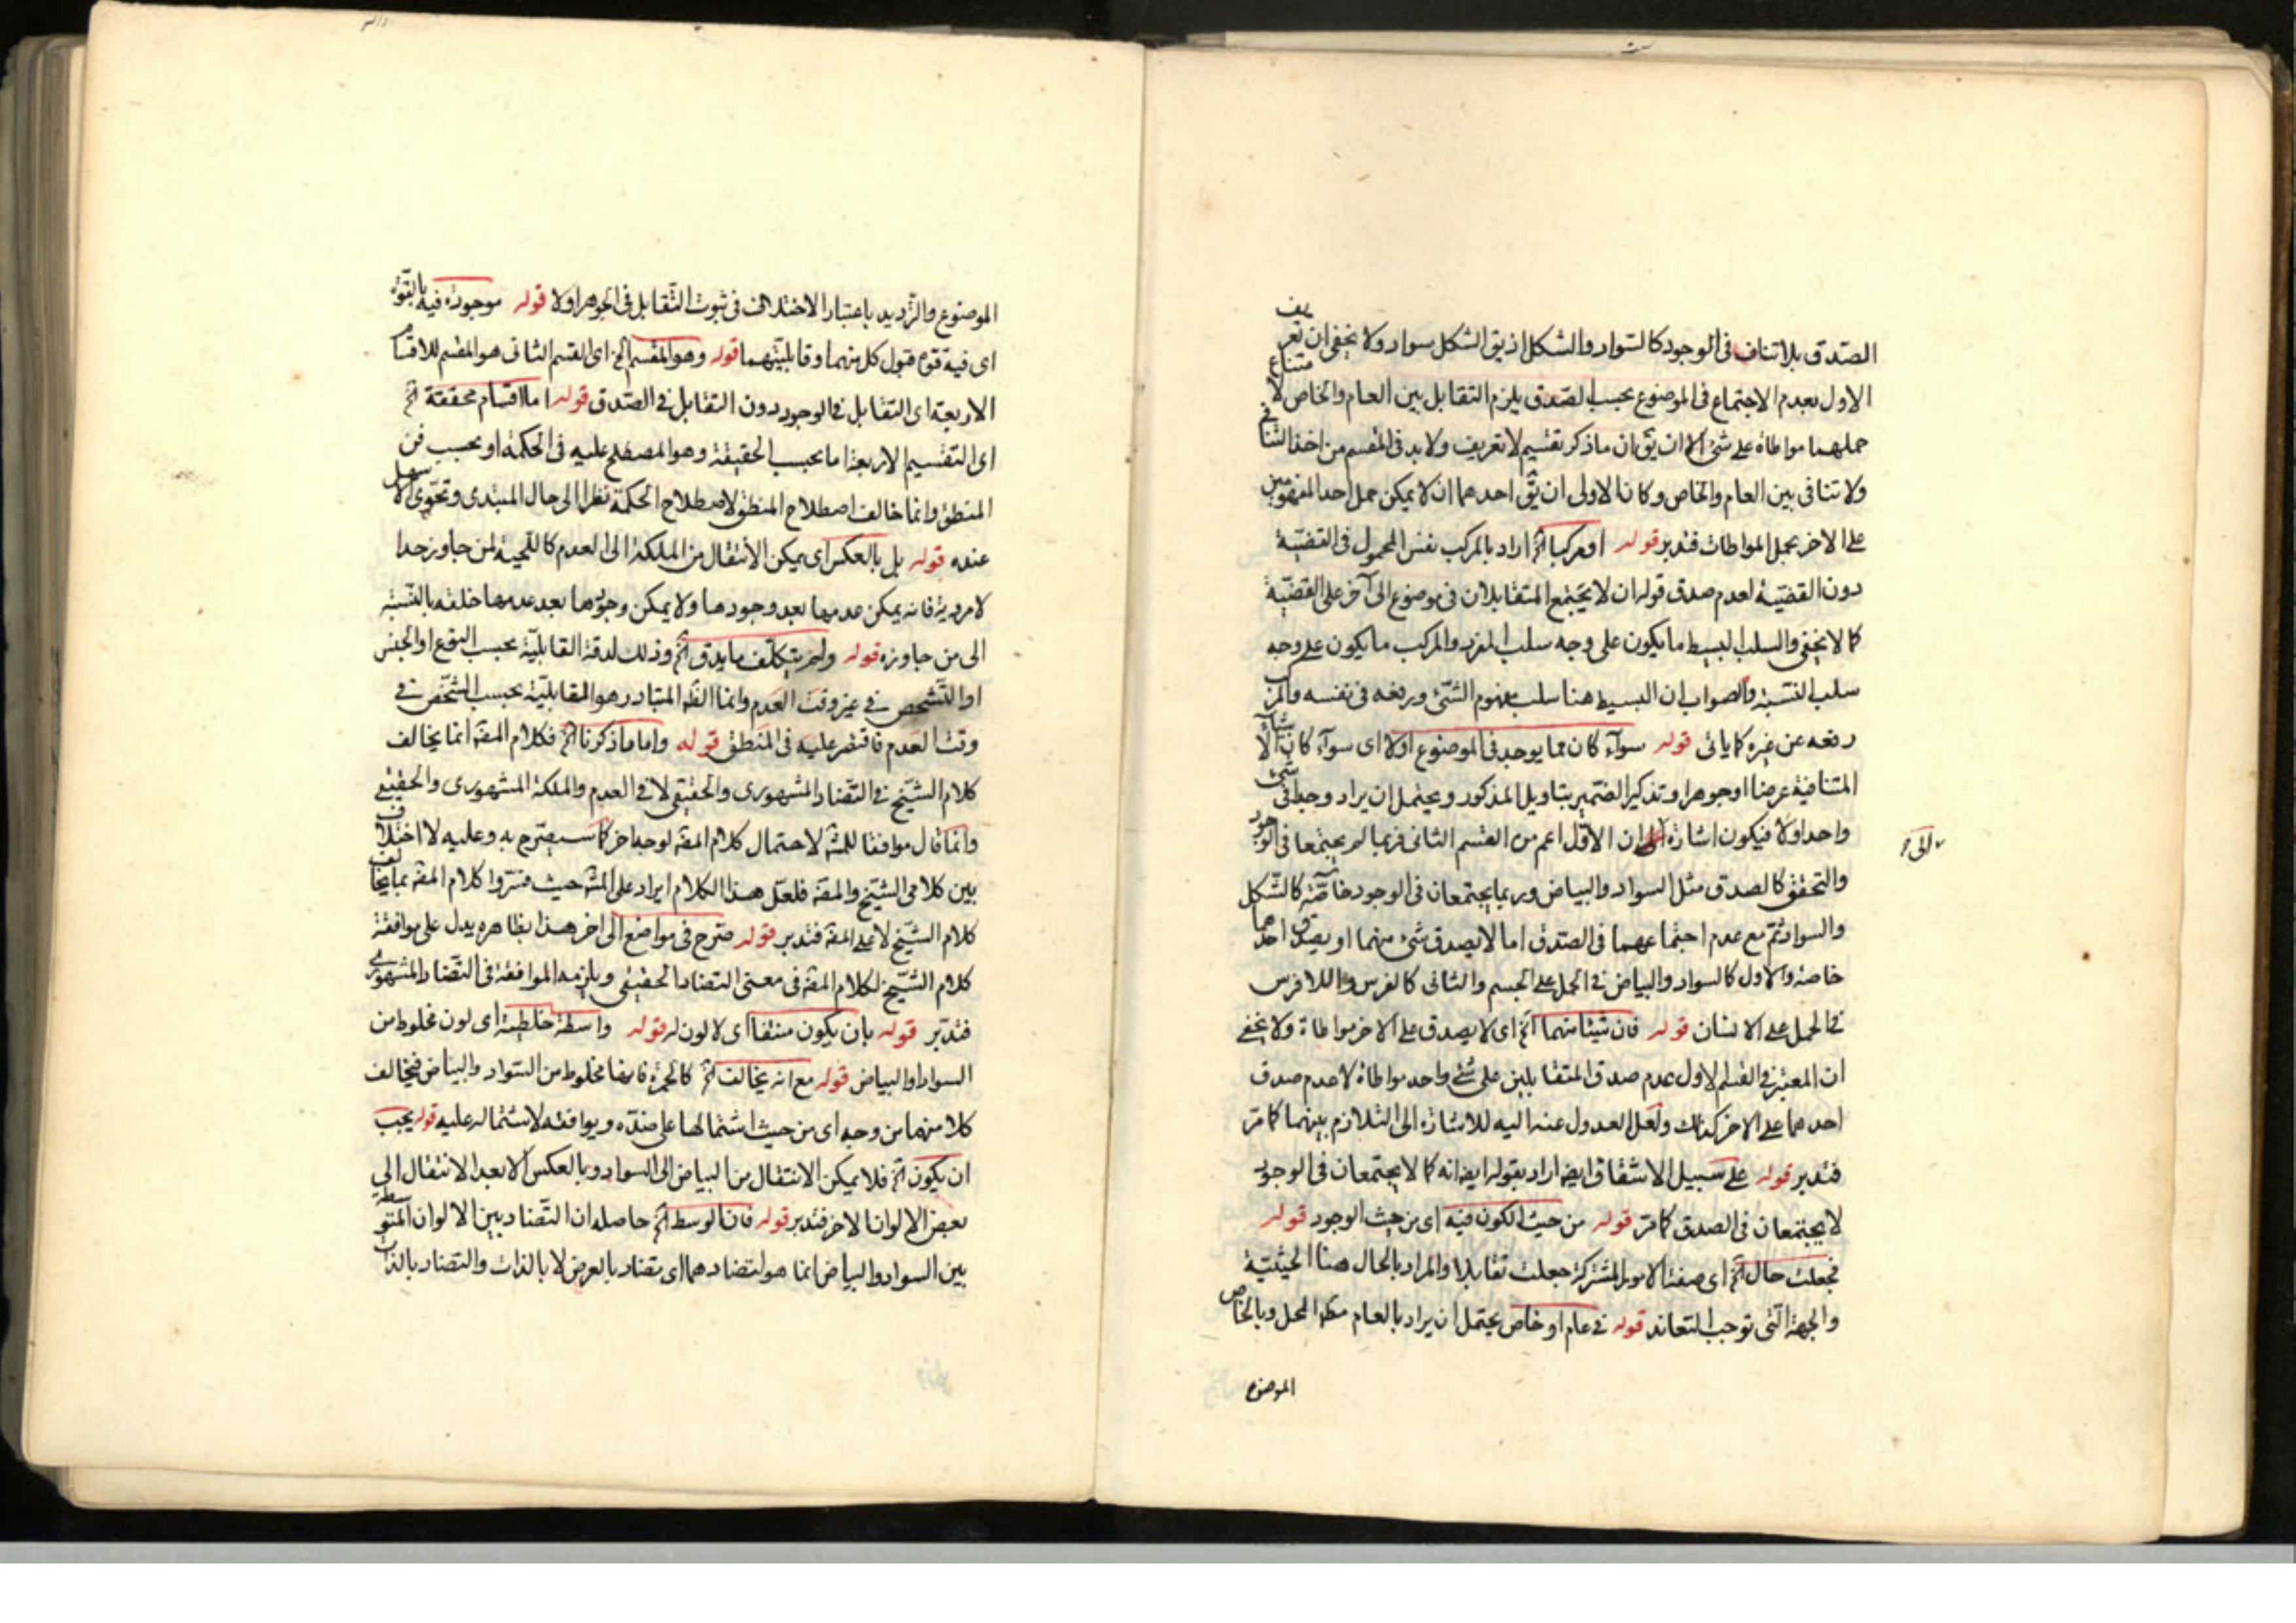 الصّدق بلا تناف فى الوجود كالسّواد والشكل اذ يق الشكل سواد ولا يخفى ان تعريف
الاول بعدم الاجتماع فى الموضوع بحسب الصّدق يلزم التقابل بين العام والخاص لامتناع
حملهما مواطاة على شئ الا ان يق ان ماذكر تقسيم لا تعريف ولا بد فى المقسم من اخذ التنافى
ولا تنافى بين العام والخاص وكان الاولى ان يق احدهما ان لا يمكن حمل احد المفهومين
على الاخر بحمل المواطات فتدبر قوله او مركبا الخ اراد بالمركب نفس المحمول فى القضيّة
دون القضيّة لعدم صدق قوله ان لا يجتمع المتقابلان فى موضوع الى آخر على القضيّة
كما لا يخفى والسلب البسيط ما يكون على وجه سلب المفرد والمركب ما يكون على وجه
سلب النسبة والصواب ان البسيط هنا سلب مفهوم الشئ ورفعه فى نفسه والمركب
رفعه عن غيره كما ياتى قوله سوآء كان مما يوجد فى الموضوع اولا اى سوآء كان الاشيآء
المتنافية عرضا او جوهرا وتذكير الضمير بتاويل المذكور ويحتمل ان يراد وجدا فى شئ
واحد اولا فيكون اشارة الى ان الاوّل اعم من القسم الثانى فربما لم يجتمعا فى الوجود
والتحقق كالصدق مثل السواد والبياض وربما يجتمعان فى الوجود خاصّة كالشّكل
والسواد ثمّ مع عدم اجتماعهما فى الصّدق اما لا يصدق شئ منهما او يصدق احدهما
خاصة والاول كالسواد والبياض فى الحمل على الجسم والثانى كالفرس واللافرس
فى الحمل على الانسان قوله فان شيئا منهما الخ اى لا يصدق على الاخر مواطاة ولا يخفى
ان المعتبر فى القسم الاول عدم صدق المتقابلين على شئ واحد مواطاة لا عدم صدق
احدهما على الاخر كذلك ولعل العدول عنه اليه للاشارة الى التلازم بينهما كما مر
فتدبر قوله على سبيل الاشتقاق ايضا اراد بقوله ايضا انه كما لا يجتمعان فى الوجود
لا يجتمعان فى الصدق كما مر قوله من حيث الكون فيه اى من حيث الوجود قوله
فجعلت حال الخ اى صفة الامور المشتركة جعلت تقابلا والمراد بالحال هنا الحيثيّة
والجهة الّتى توجب التعاند قوله فى عام او خاص يحتمل ان يراد بالعام مطلق المحل وبالخاص
الموضوع
الموضوع والترديد باعتبار الاختلاف فى ثبوت التّقابل فى الجوهر اولا قوله موجودة فيه بالقوّة
اى فيه قوة قبول كل منهما وقابليّتهما قوله وهو المقسم الخ اى القسم الثانى هو المقسم للاقسام
الاربعة اى التقابل فى الوجود دون التقابل فى الصّدق قوله اما اقسام محققة الخ
اى التقسيم لاربعة اما بحسب الحقيقة وهو المصطلح عليه فى الحكمة او بحسب فن
المنطق وانما خالف اصطلاح المنطق لاصطلاح الحكمة نظرا الى حال المبتدى وتحوى الاسهل
عنده قوله بل بالعكس اى يمكن الانتقال من الملكة الى العدم كاللحية لمن جاوز حدا
لامردية فانه يمكن عدمها بعد وجودها ولا يمكن وجودها بعد عدمها خلقه بالنّسبة
الى من جاوزه قوله ولم يتكلّف ما يدق الخ وذلك لدقة القابليّة بحسب النوع او الجنس
او التّشخص فى غير وقت العدم وانما الظ المتبادر هو المقابليّة بحسب الشّخص فى
وقت العدم فاقتصر عليه فى المنطق قوله واما ماذكرنا الخ فكلام المص انما يخالف
كلام الشّيخ فى التّضاد المشهورى والحقيقى لا فى العدم والملكة المشهورى والحقيقى
وانّما قال موافقا للش لاحتمال كلام المص لوجه اخر كما سيصّرح به وعليه لا اختلاف
بين كلامى الشيخ والمص فلعلّ هذا الكلام ايراد على الش حيث فسّروا كلام المص بما يخالف
كلام الشّيخ لا على المص فتدبر قوله صّرح فى مواضع الى اخر هذا بظاهره يدل على موافقة
كلام الشّيخ لكلام المص فى معنى التضاد الحقيقى ويلزمه الموافقة فى التّضاد المشهورى
فتدبّر قوله بان يكون منتفا اى لا لون له قوله واسطة خلطية اى لون مخلوط من
السواد والبياض قوله مع انه يخالف الخ كالحمرة فانها مخلوط من السّواد والبياض فيخالف
كلا منهما من وجه اى من حيث اشتمالها على ضدّه ويوافقه لاشتماله عليه قوله يجب
ان يكون الخ فلا يمكن الانتقال من البياض الى السواد وبالعكس الا بعد الانتقال الى
بعض الالوان الاخر فتدبر قوله فان الوسط الخ حاصله ان التّضاد بين الالوان المتوسطة
بين السواد والبياض انما هو لتضادهما اى تضاد بالعرض لا بالذات والتضاد بالذات